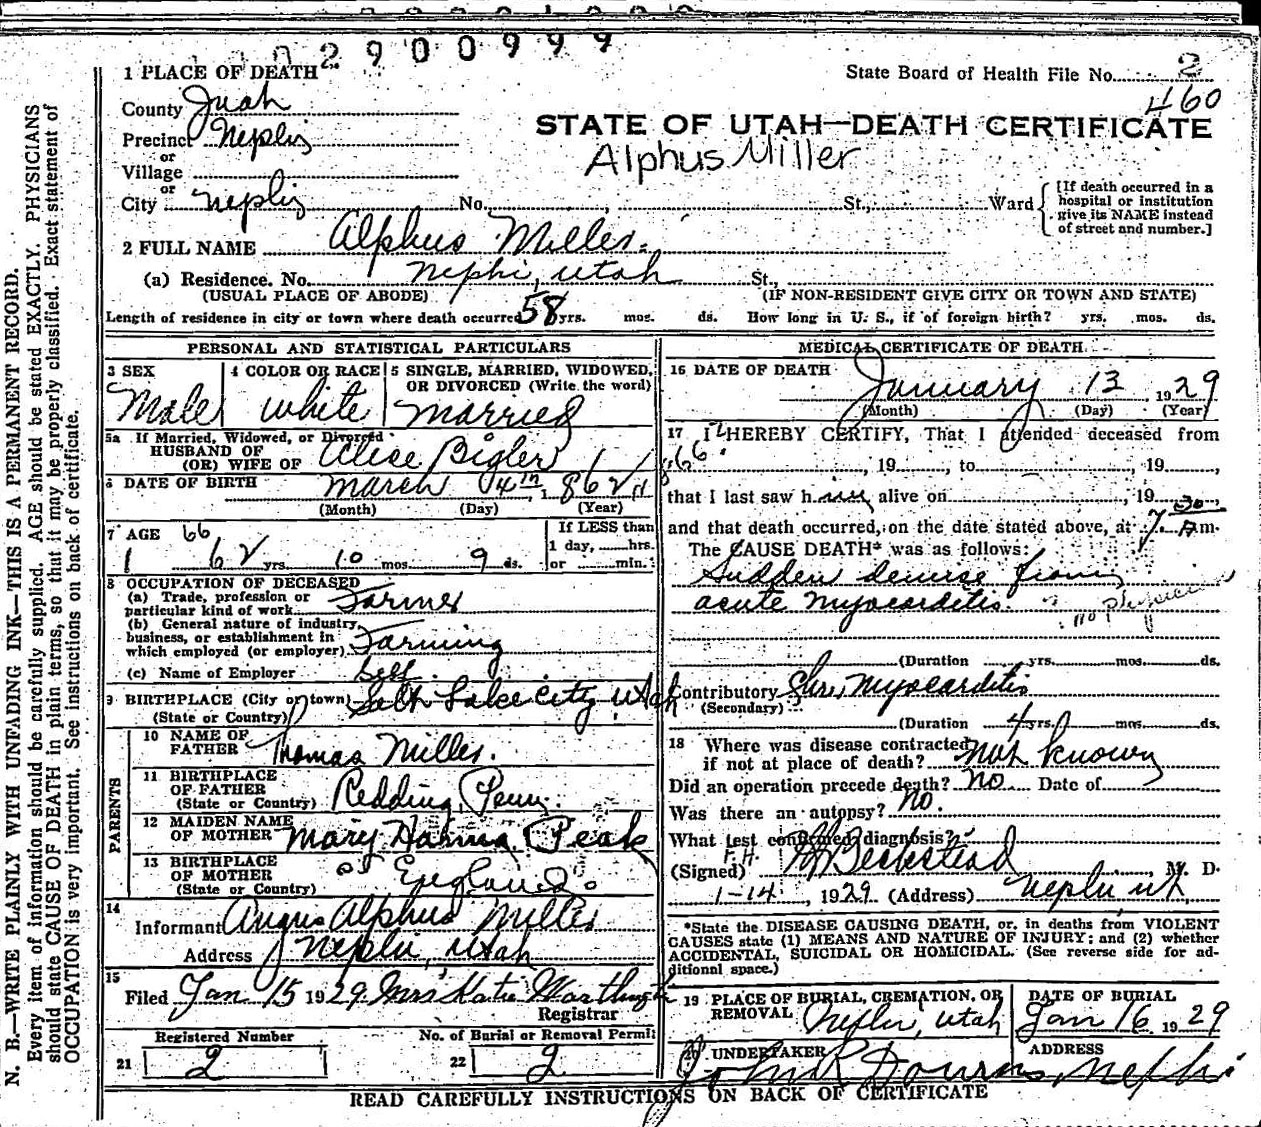 2900999
1 PLACE OF DEATH
State Board of Health File No. 2
460
County Juab
Precinct Nephi
or
Village
or
City Nephi No. , St., Ward
[If death occurred in a
hospital or institution
give its NAME instead
of street and number.]
STATE OF UTAH—DEATH CERTIFICATE
Alphus Miller
2 FULL NAME Alphus Miller.
(a) Residence. No. Nephi, Utah St.,
(USUAL PLACE OF ABODE) (IF NON-RESIDENT GIVE CITY OR TOWN AND STATE)
Length of residence in city or town where death occurred 58 yrs. mos. ds. How long in U. S., if of foreign birth? yrs. mos. ds.
PERSONAL AND STATISTICAL PARTICULARS
3 SEX
Male
4 COLOR OR RACE
White
5 SINGLE, MARRIED, WIDOWED,
OR DIVORCED (Write the word)
Married
5a If Married, Widowed, or Divorced
HUSBAND OF
(OR) WIFE OF Alice Bigler
6 DATE OF BIRTH March 4th, 1862
(Month) (Day) (Year)
7 AGE 66
62 yrs. 10 mos. 9 ds.
If LESS than
1 day, hrs.
or min.
8 OCCUPATION OF DECEASED
(a) Trade, profession or
particular kind of work Farmer
(b) General nature of industry,
business, or establishment in
which employed (or employer) Farming
(c) Name of Employer Self.
9 BIRTHPLACE (City or town) Salt Lake City, Utah
(State or Country)
PARENTS
10 NAME OF
FATHER Thomas Miller.
11 BIRTHPLACE
OF FATHER
(State or Country) Redding, Penn.
12 MAIDEN NAME
OF MOTHER Mary Peak
13 BIRTHPLACE
OF MOTHER
(State or Country) England.
14
Informant Angus Alphus Miller
Address Nephi, Utah
15
Filed Jan 15 1929 Mrs Katie
Registrar
Registered Number
21 2
No. of Burial or Removal Permit
22 2
MEDICAL CERTIFICATE OF DEATH
16 DATE OF DEATH
January 13, 1929
(Month) (Day) (Year)
17 I HEREBY CERTIFY, That I attended deceased from
66
, 19 , to , 19 ,
that I last saw him alive on , 19 ,
and that death occurred, on the date stated above, at 7 30 A m.
The CAUSE DEATH* was as follows:
Sudden demise from
acute myocarditis.
no physician
(Duration yrs. mos. ds.
Contributory Chr. Myocarditis
(Secondary)
(Duration 4 yrs. mos. ds.
18 Where was disease contracted
if not at place of death? not known
Did an operation precede death? No Date of
Was there an autopsy? No.
What test confirmed diagnosis?
(Signed) Beckstead, M. D.
1-14, 1929 (Address) Nephi Ut,
*State the DISEASE CAUSING DEATH, or, in deaths from VIOLENT
CAUSES state (1) MEANS AND NATURE OF INJURY; and (2) whether
ACCIDENTAL, SUICIDAL OR HOMICIDAL. (See reverse side for ad-
ditional space.)
19 PLACE OF BURIAL, CREMATION, OR
REMOVAL Nephi, Utah
DATE OF BURIAL
Jan 16 1929
20 UNDERTAKER
John
ADDRESS
Nephi
READ CAREFULLY INSTRUCTIONS ON BACK OF CERTIFICATE
N. B.—WRITE PLAINLY WITH UNFADING INK—THIS IS A PERMANENT RECORD.
Every item of information should be carefully supplied. AGE should be stated EXACTLY. PHYSICIANS
should state CAUSE OF DEATH in plain terms, so that it may be properly classified. Exact statement of
OCCUPATION is very important. See instructions on back of certificate.